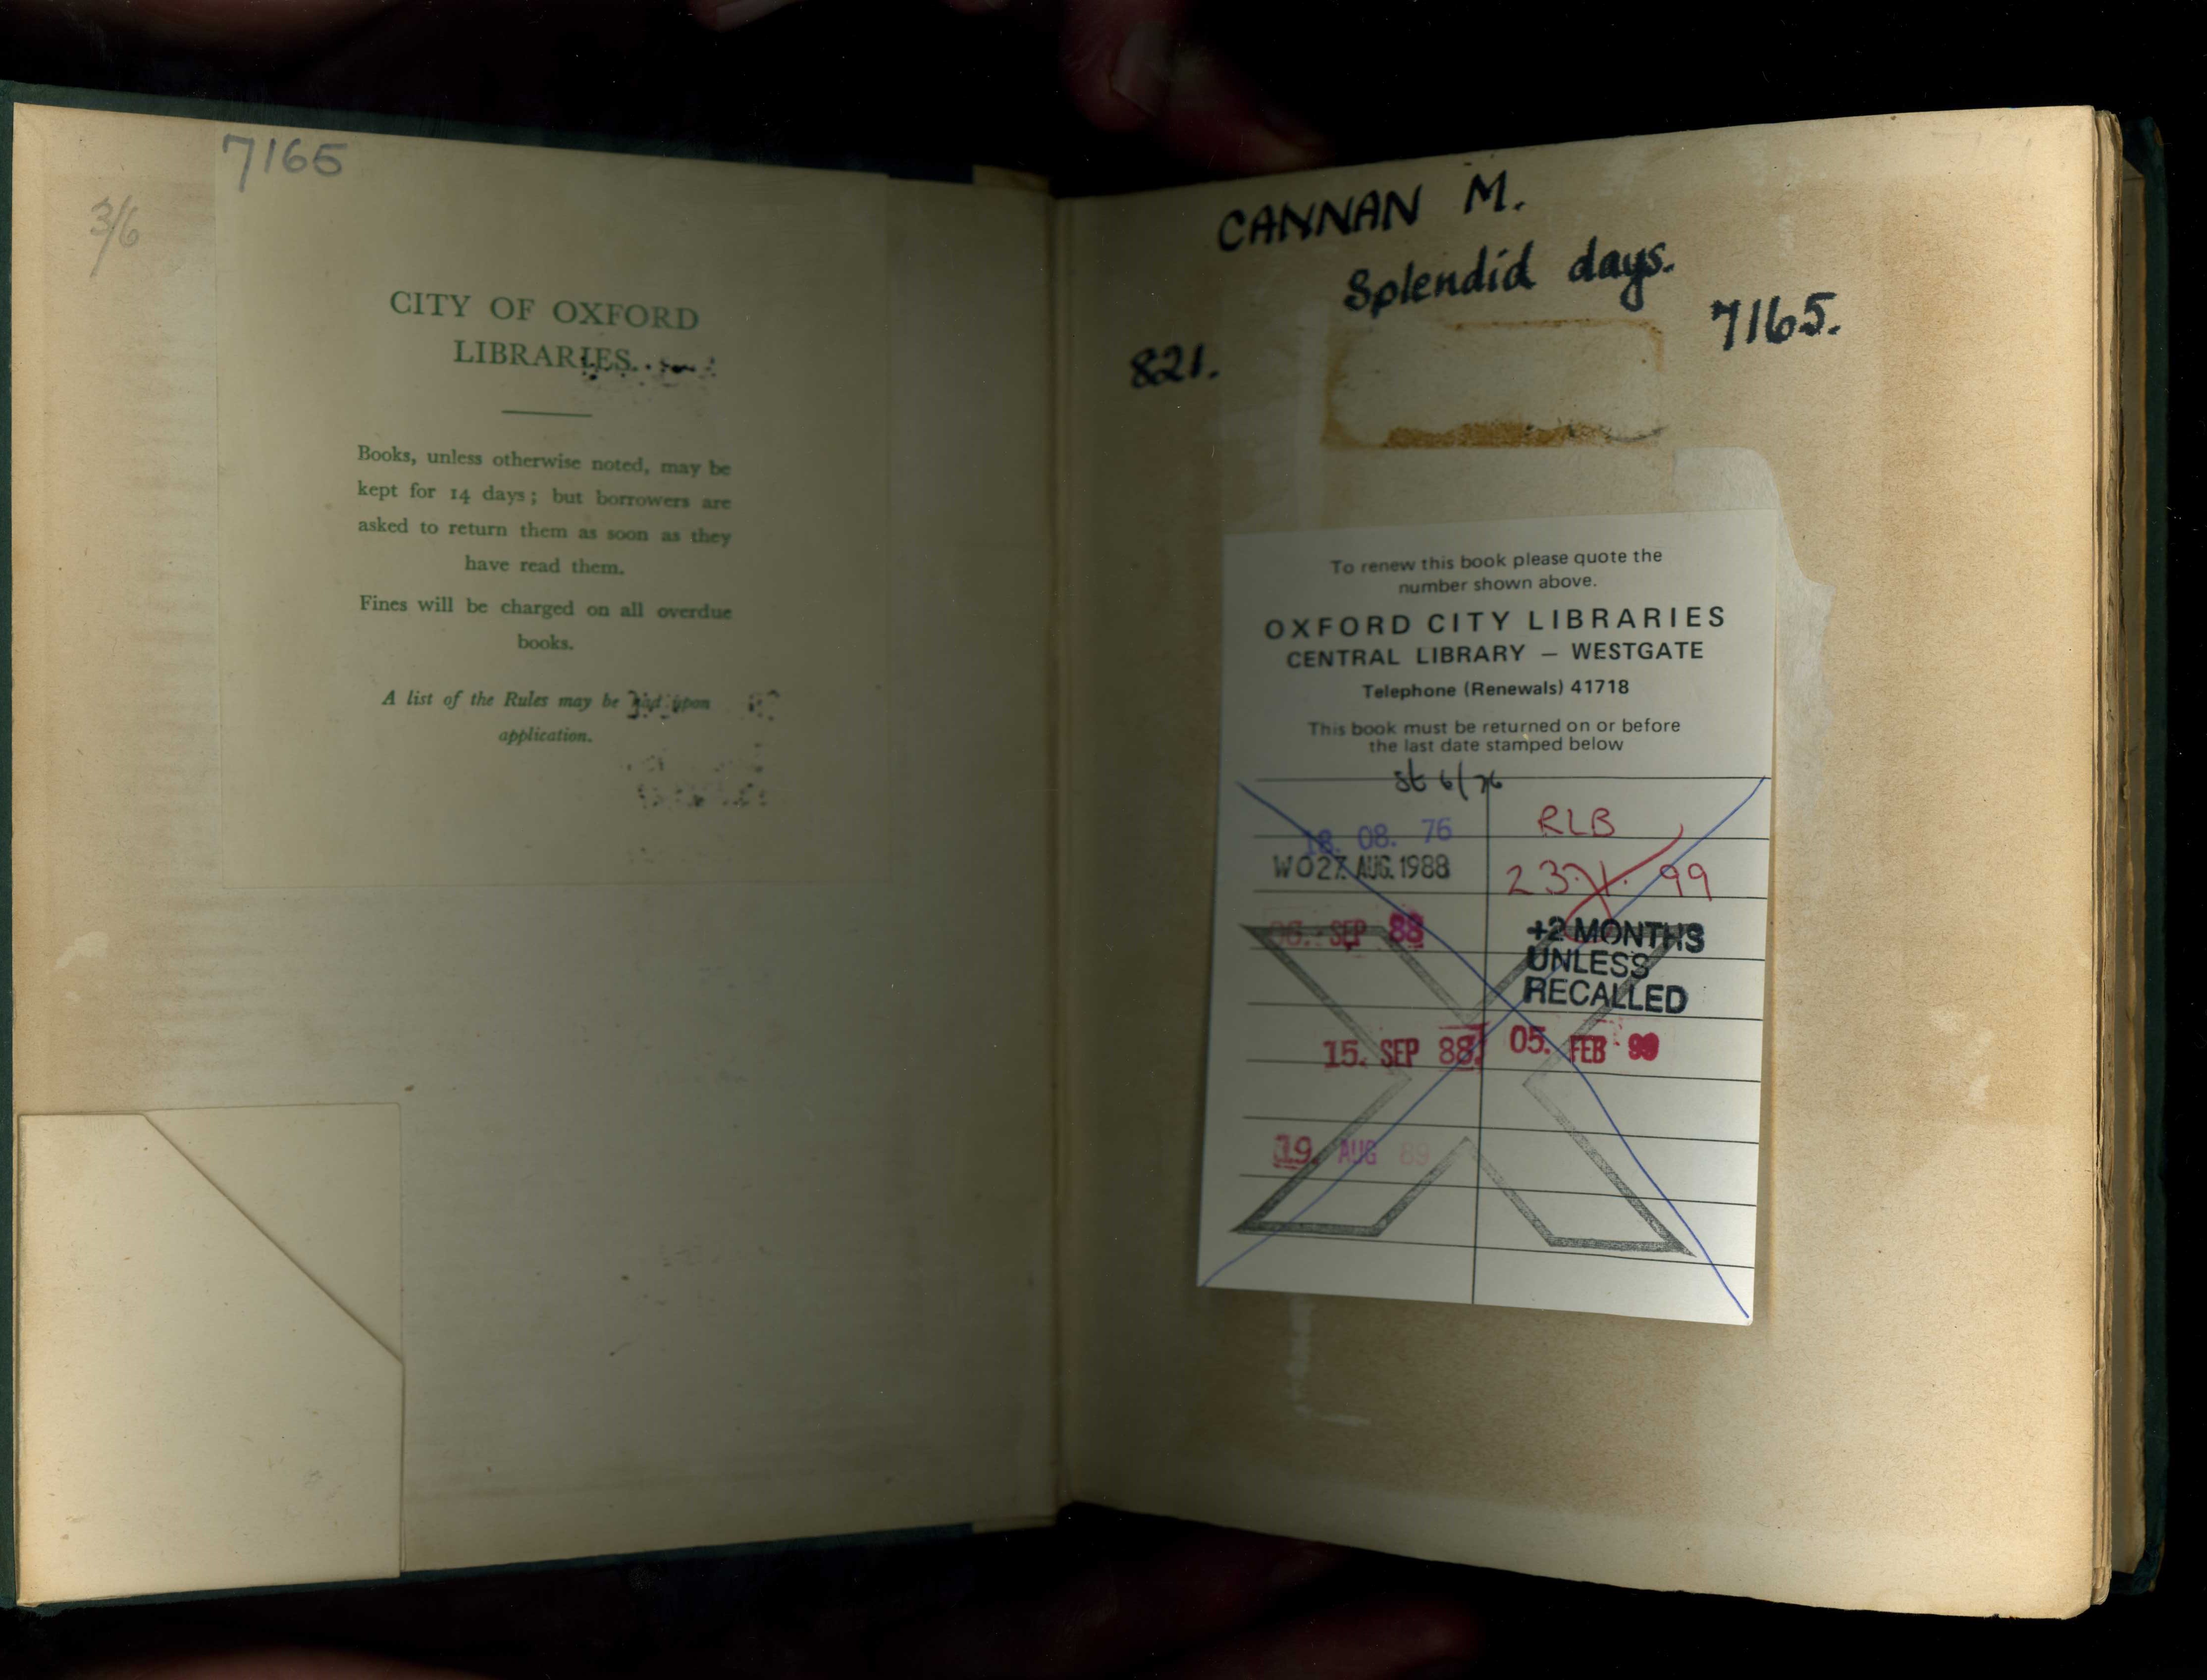 7165
3/6
CITY OF OXFORD
LIBRARIES
Books, unless otherwise noted, may be
kept for 14 days; but borrowers are
asked to return them as soon as they
have read them.
Fines will be charged on all overdue
books.
A list of the Rules may be had upon
application.
CANNAN M.
Splendid days.
7165.
821.
To renew this book please quote the
number shown above.
OXFORD CITY LIBRARIES
CENTRAL LIBRARY — WESTGATE
Telephone (Renewals) 41718
This book must be returned on or before
the last date stamped below
st 6/76
18. 08. 76
WO27. AUG. 1988
SEP 88
15. SEP 88
19. AUG 89
RLB
23. 99
+2 MONTHS
UNLESS
RECALLED
05. FEB 99